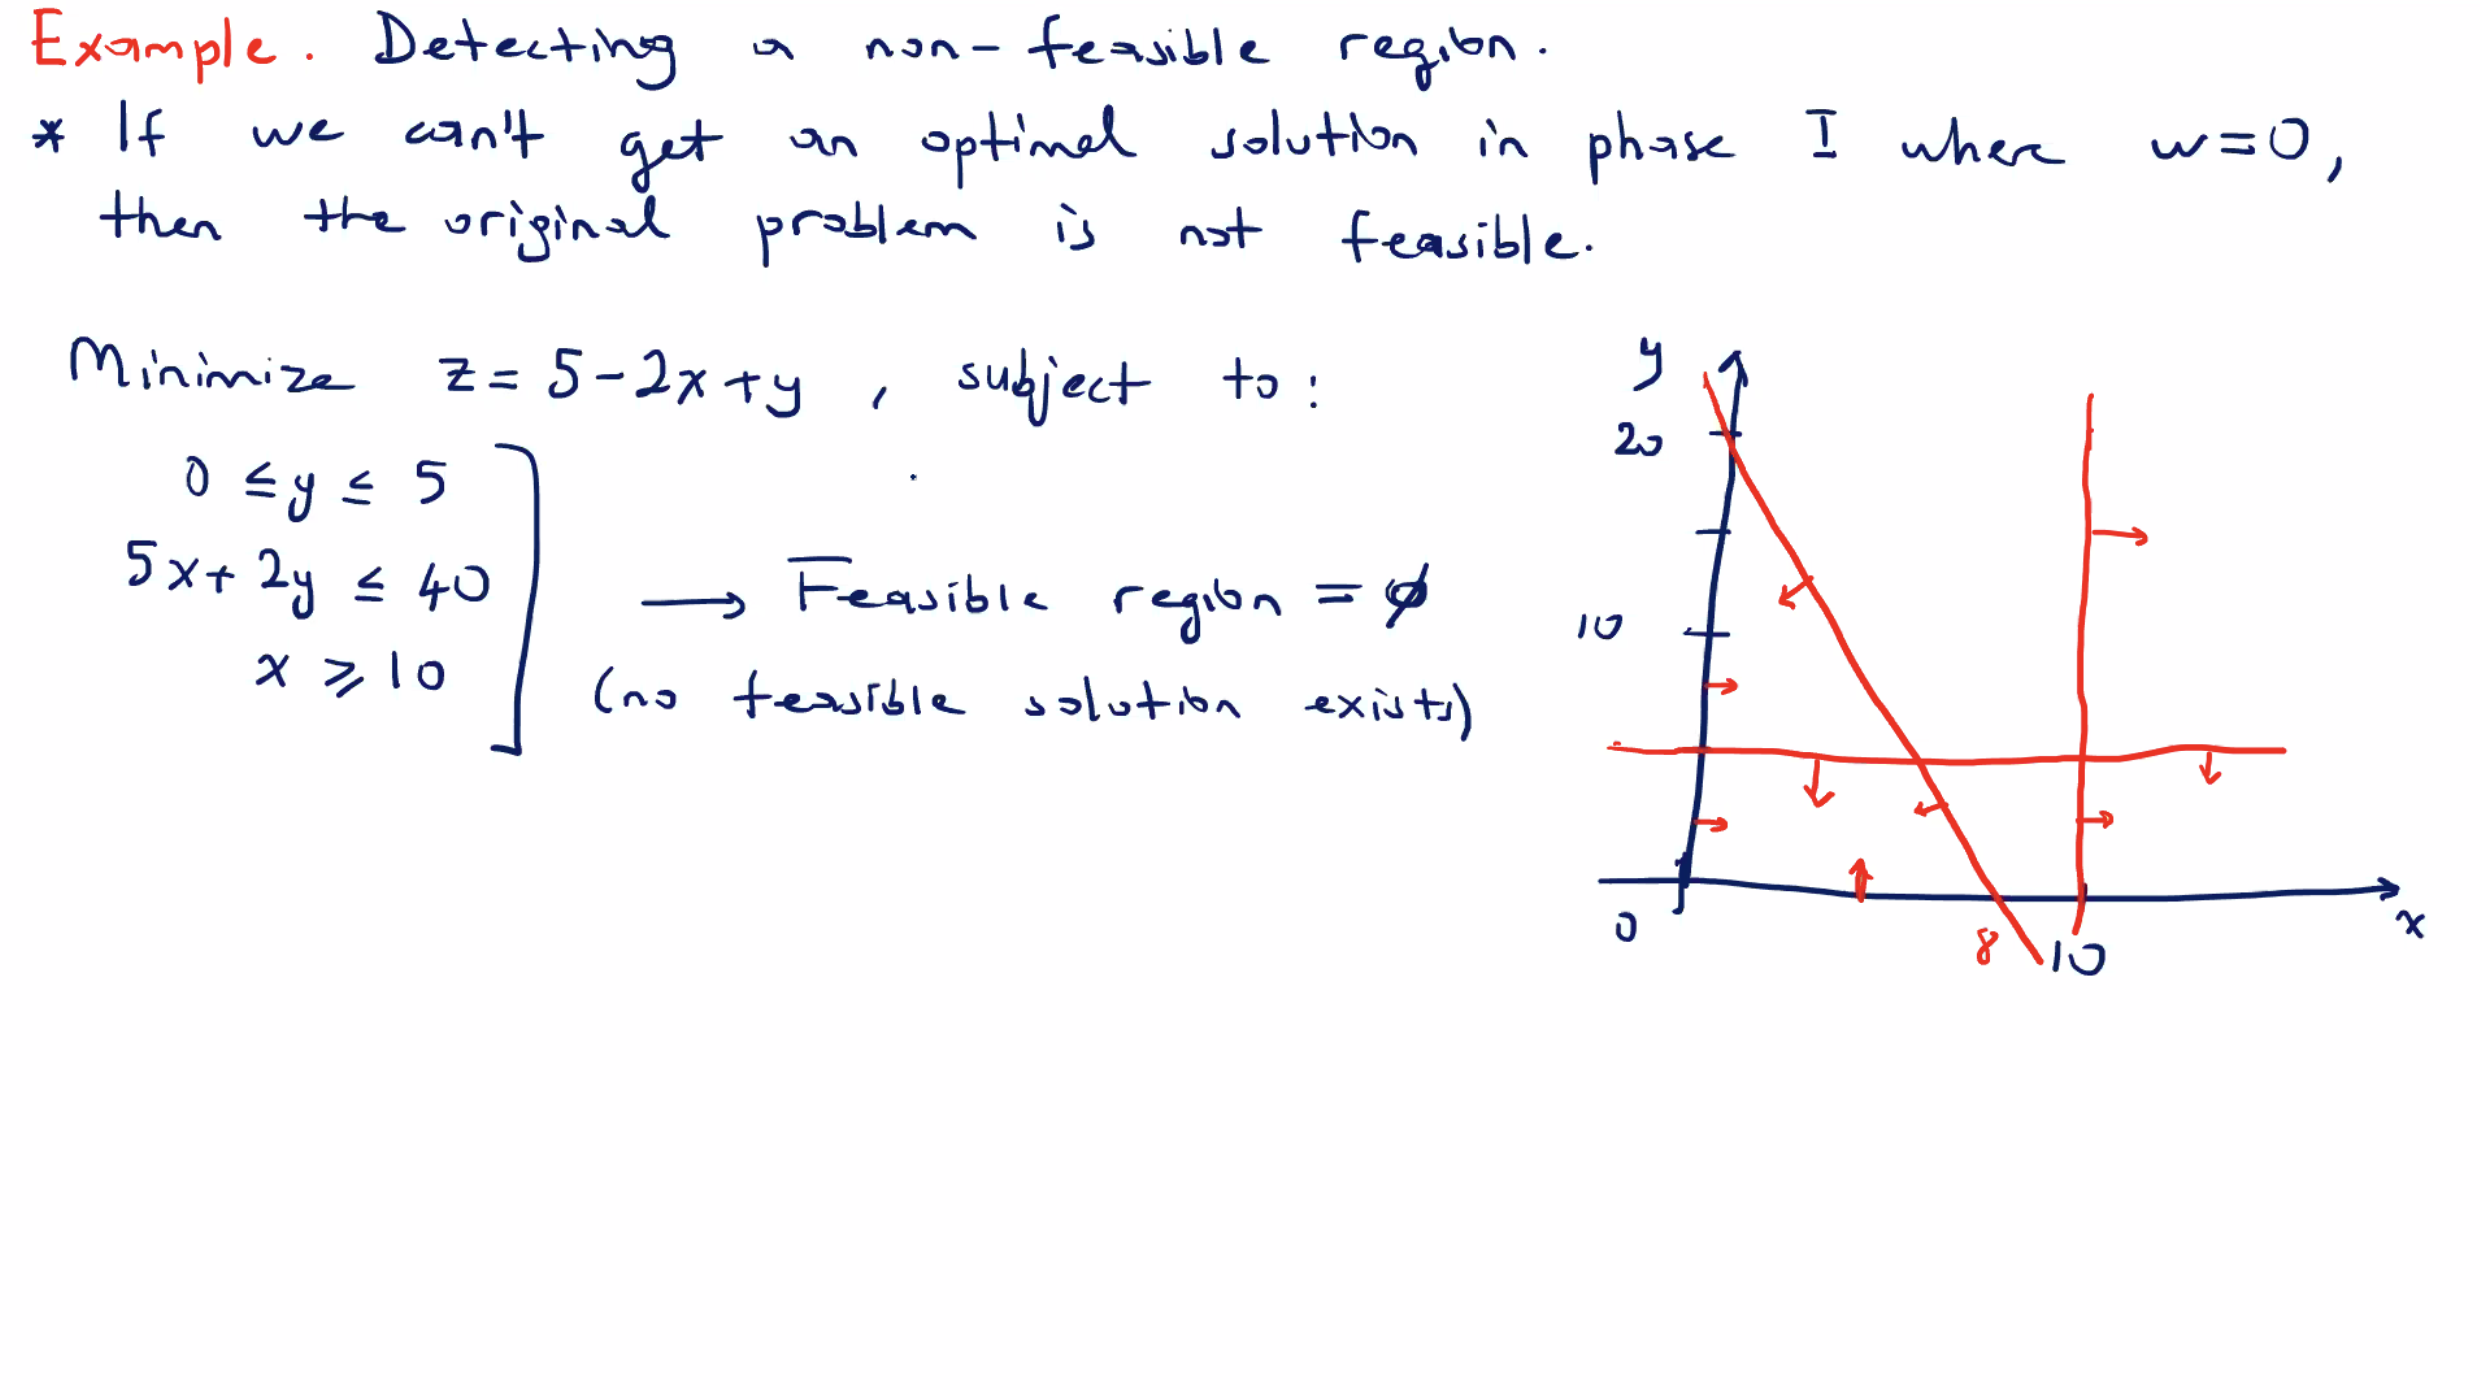 Example. Detecting a non-feasible region.
* If we can't get an optimal solution in phase I where w=0,
then the original problem is not feasible.
Minimize z = 5-2x+y , subject to:
0 ≤ y ≤ 5
5x+2y ≤ 40
x ≥ 10
→ Feasible region = ∅
(no feasible solution exists)
y
20
10
0
8
10
x